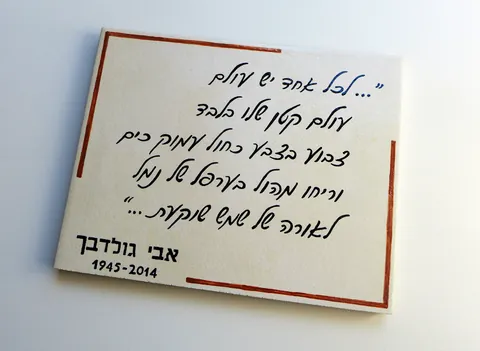 "...לכל אחד יש עולם
עולם קטן שלו בלבד
צבוע בצבע כחול עמוק כים
וריחו מהול בערפל של נמל
לאורה של שמש שוקעת..."
אבי גולדבך
1945-2014